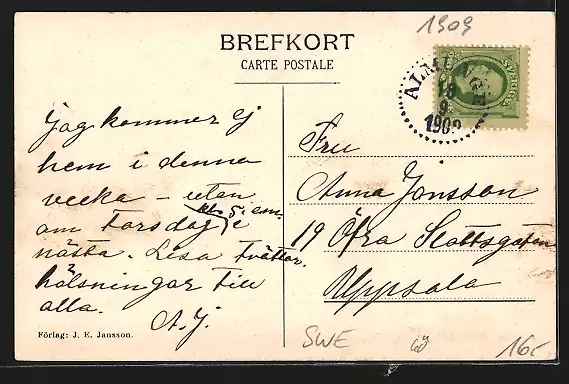 1909
BREFKORT
CARTE POSTALE
ALMUNGE
SVERIGE
1909
Jag kommer ej
hem i denna
vecka – utan
kl. 5 e.m.
om Torsdag i
nästa. Lisa tvättar.
hälsningar till
alla.
A. J.
Förlag: J. E. Jansson.
Fru
Anna Jonsson
19 Öfra Slottsgatan
Uppsala
SWE
16,-